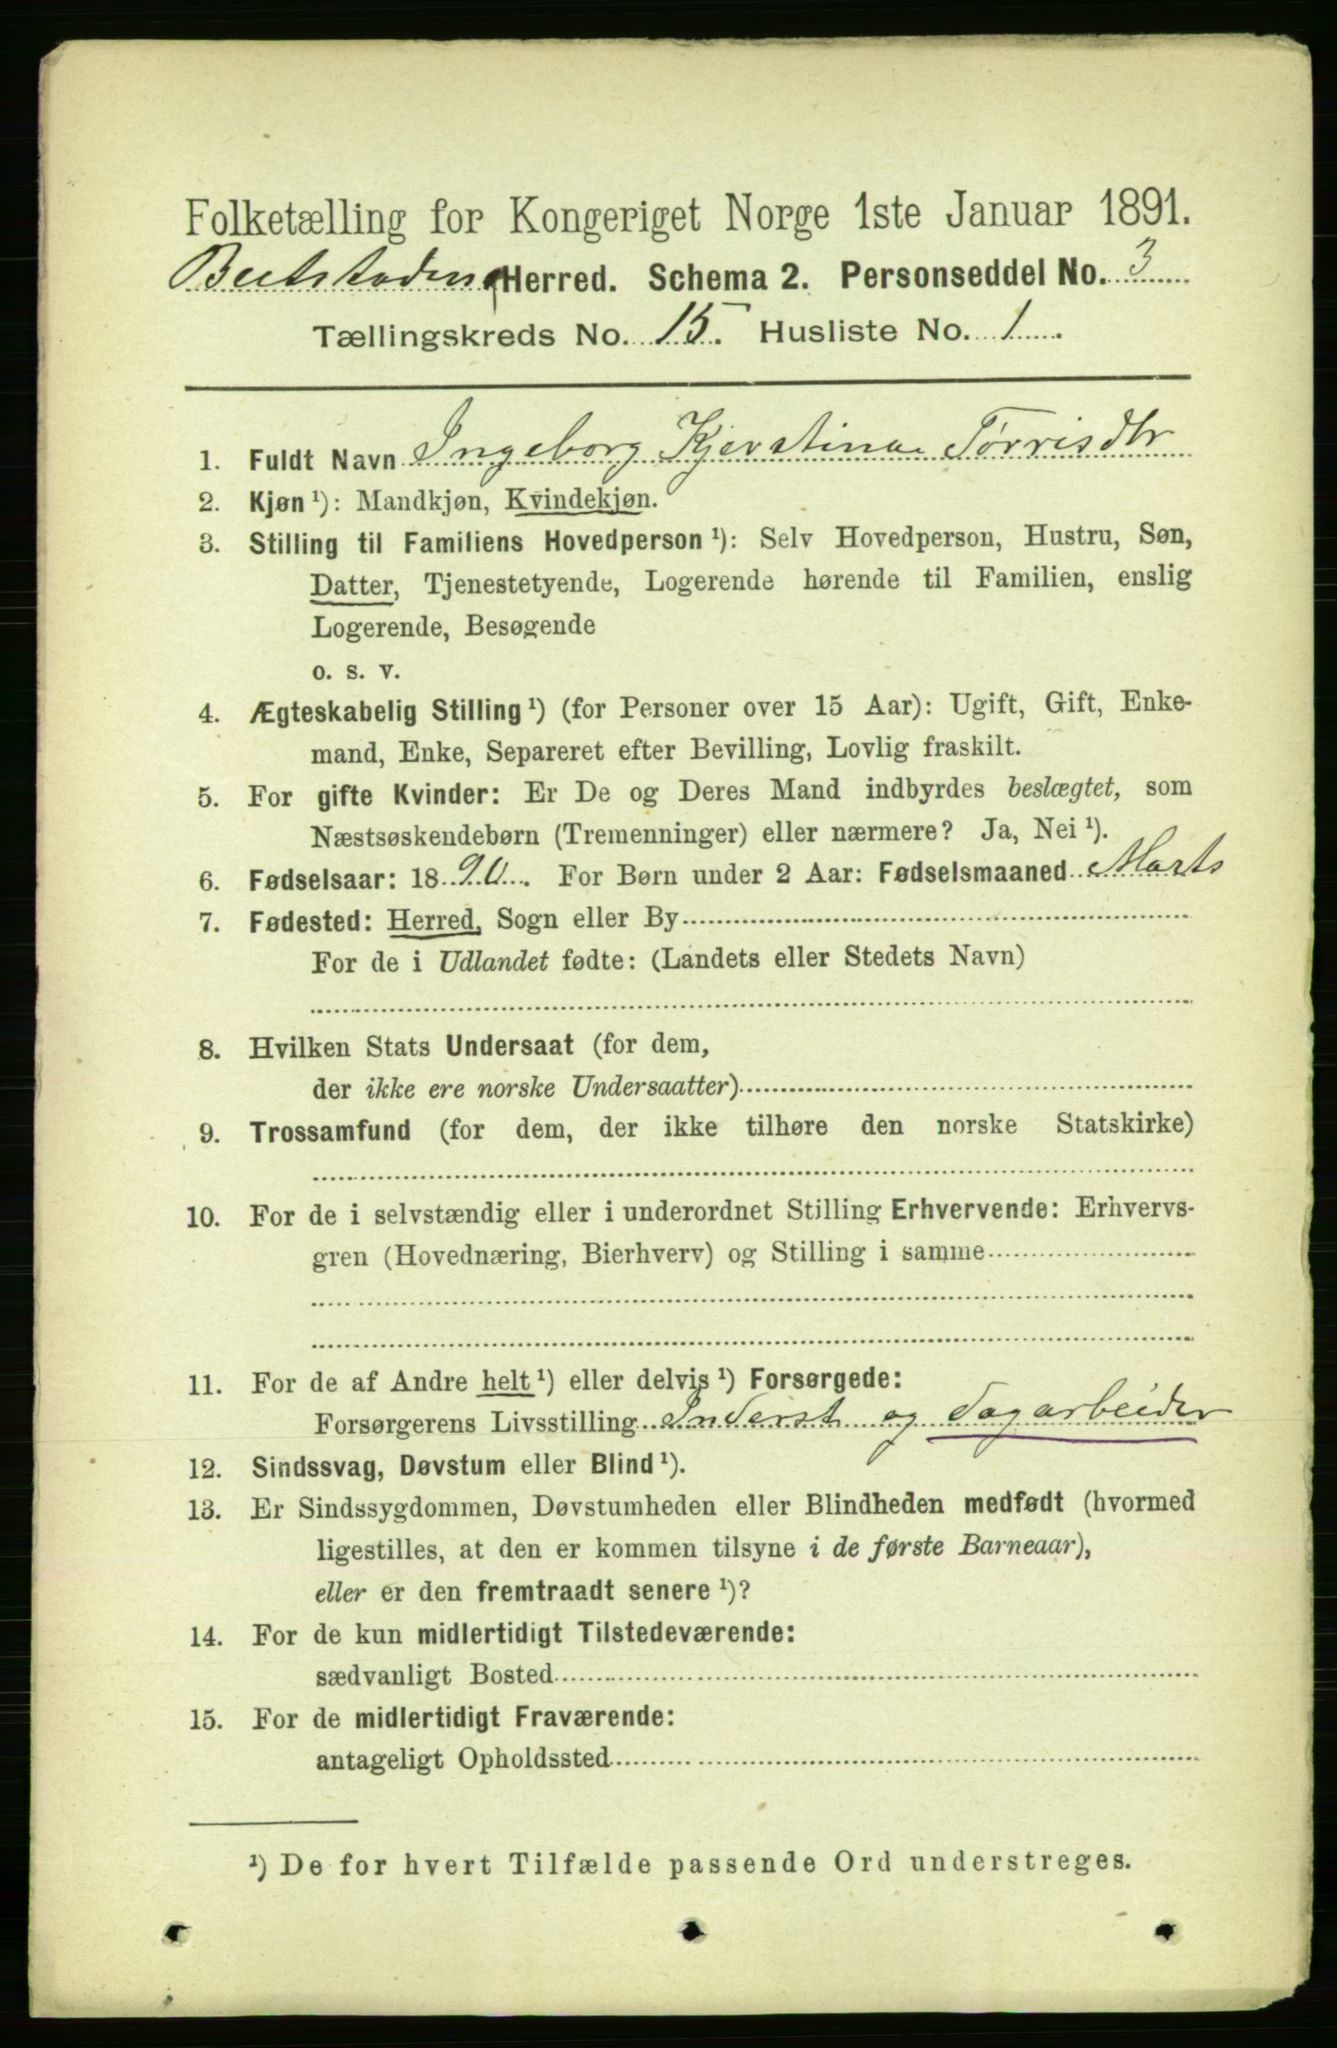 Folketælling for Kongeriget Norge 1ste Januar 1891.
Beitstadens Herred. Schema 2. Personseddel No. 3
Tællingskreds No. 15. Husliste No. 1.
1. Fuldt Navn Ingeborg Kjerstina Tørrisdtr
2. Kjøn ¹): Mandkjøn, Kvindekjøn.
3. Stilling til Familiens Hovedperson ¹): Selv Hovedperson, Hustru, Søn,
Datter, Tjenestetyende, Logerende hørende til Familien, enslig
Logerende, Besøgende
o. s. v.
4. Ægteskabelig Stilling ¹) (for Personer over 15 Aar): Ugift, Gift, Enke-
mand, Enke, Separeret efter Bevilling, Lovlig fraskilt.
5. For gifte Kvinder: Er De og Deres Mand indbyrdes beslægtet, som
Næstsøskendebørn (Tremenninger) eller nærmere? Ja, Nei ¹).
6. Fødselsaar: 1890. For Børn under 2 Aar: Fødselsmaaned Marts
7. Fødested: Herred, Sogn eller By
For de i Udlandet fødte: (Landets eller Stedets Navn)
8. Hvilken Stats Undersaat (for dem,
der ikke ere norske Undersaatter)
9. Trossamfund (for dem, der ikke tilhøre den norske Statskirke)
10. For de i selvstændig eller i underordnet Stilling Erhvervende: Erhvervs-
gren (Hovednæring, Bierhverv) og Stilling i samme
11. For de af Andre helt ¹) eller delvis ¹) Forsørgede:
Forsørgerens Livsstilling Inderst og Sagarbeider
12. Sindssvag, Døvstum eller Blind ¹).
13. Er Sindssygdommen, Døvstumheden eller Blindheden medfødt (hvormed
ligestilles, at den er kommen tilsyne i de første Barneaar),
eller er den fremtraadt senere ¹)?
14. For de kun midlertidigt Tilstedeværende:
sædvanligt Bosted
15. For de midlertidigt Fraværende:
antageligt Opholdssted
¹) De for hvert Tilfælde passende Ord understreges.